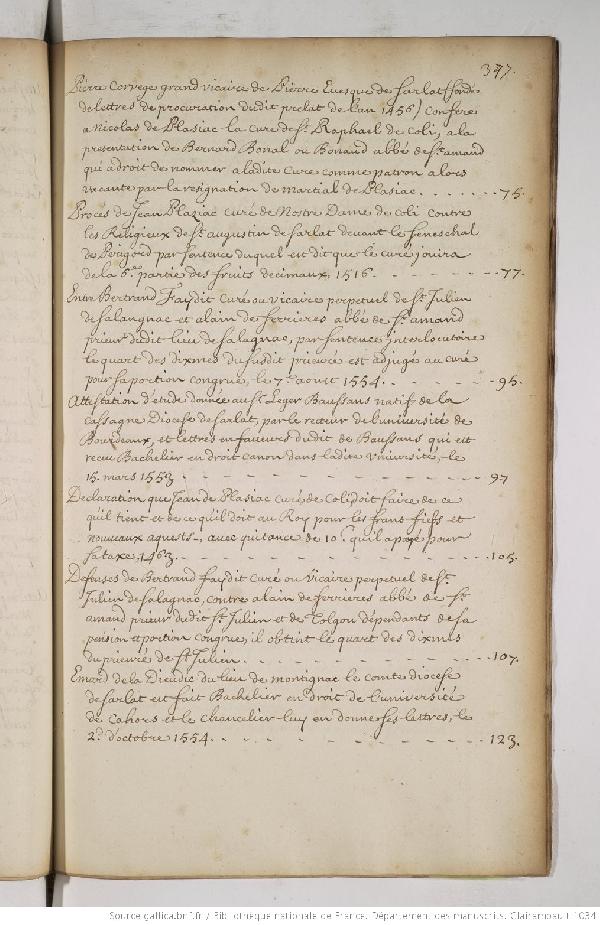 347.
Pierre Corvege grand vicaire de Pierre Evesque de Sarlat (fondé
de lettres de procuration dudit prelat de l'an 1456) confere
a Nicolas de Plasiac la cure de St. Raphael de Coli, a la
presentation de Bernard Bonal ou Bonaud abbé de St. amand
qui a droit de nommer a ladite cure comme patron alors
vacante par la resignation de Martial de Plasiac. - - - - - 75.
Procés de Jean Plaziac curé de Nostre Dame de Coli contre
les Religieux de St. augustin de Sarlat devant le seneschal
de Périgord par sentence duquel est dit que le curé jouira
de la 6e. partie des fruits decimaux, 1516. - - - - - - 77.
Entre Bertrand Faydit curé ou vicaire perpetuel de St. Julien
de Salangnac et alain de ferrieres abbé de St. amand
prieur dudit lieu de Salagnac, par sentence interlocutoire
le quart des dixmes du susdit prieuré est adjugé au curé
pour sa portion congrue, le 7e. aout 1554. - - - - - 95.
Attestation d'etude donnée au Sr. Leger Baussans natif de la
Cassagne Diocese de Sarlat, par le recteur de l'université de
Bourdeaux, et lettres en faveur dudit de Baussans qui est
receu Bachelier en droit canon dans ladite université, le
15. mars 1553. - - - - - - - - - - 97
Declaration que Jean de Plasiac curé de Coli doit faire de ce
qu'il tient et de ce qu'il doit au Roy pour les frans fiefs et
nouveaux aquests, avec quitance de 10 qu'il a payé pour
sa taxe, 1463. - - - - - - - - - - - 105.
Defenses de Bertrand faydit curé ou vicaire perpetuel de St.
Julien de Salagnac, contre alain de ferrieres abbé de St.
amand prieur dudit St. Julien et de Tolgou dépendants de sa
pension et portion congrue, il obtint le quart des dixmes
du prieuré de St. Julien. - - - - - - - - 107.
Emard de la Dieudie du lieu de Montignac le comte diocese
de Sarlat est fait Bachelier en droit de l'université
de Cahors et le chancelier luy en donne ses lettres, le
2e. d'octobre 1554. - - - - - - - - - 123.
Source gallica.bnf.fr / Bibliothèque nationale de France. Département des manuscrits. Clairambault 1034